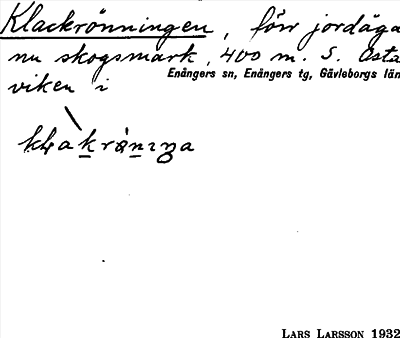 Klackrönningen, förr jordäga
nu skogsmark, 400 m. S. Osta
Enångers sn, Enångers tg, Gävleborgs län
viken i
LARS LARSSON 1932